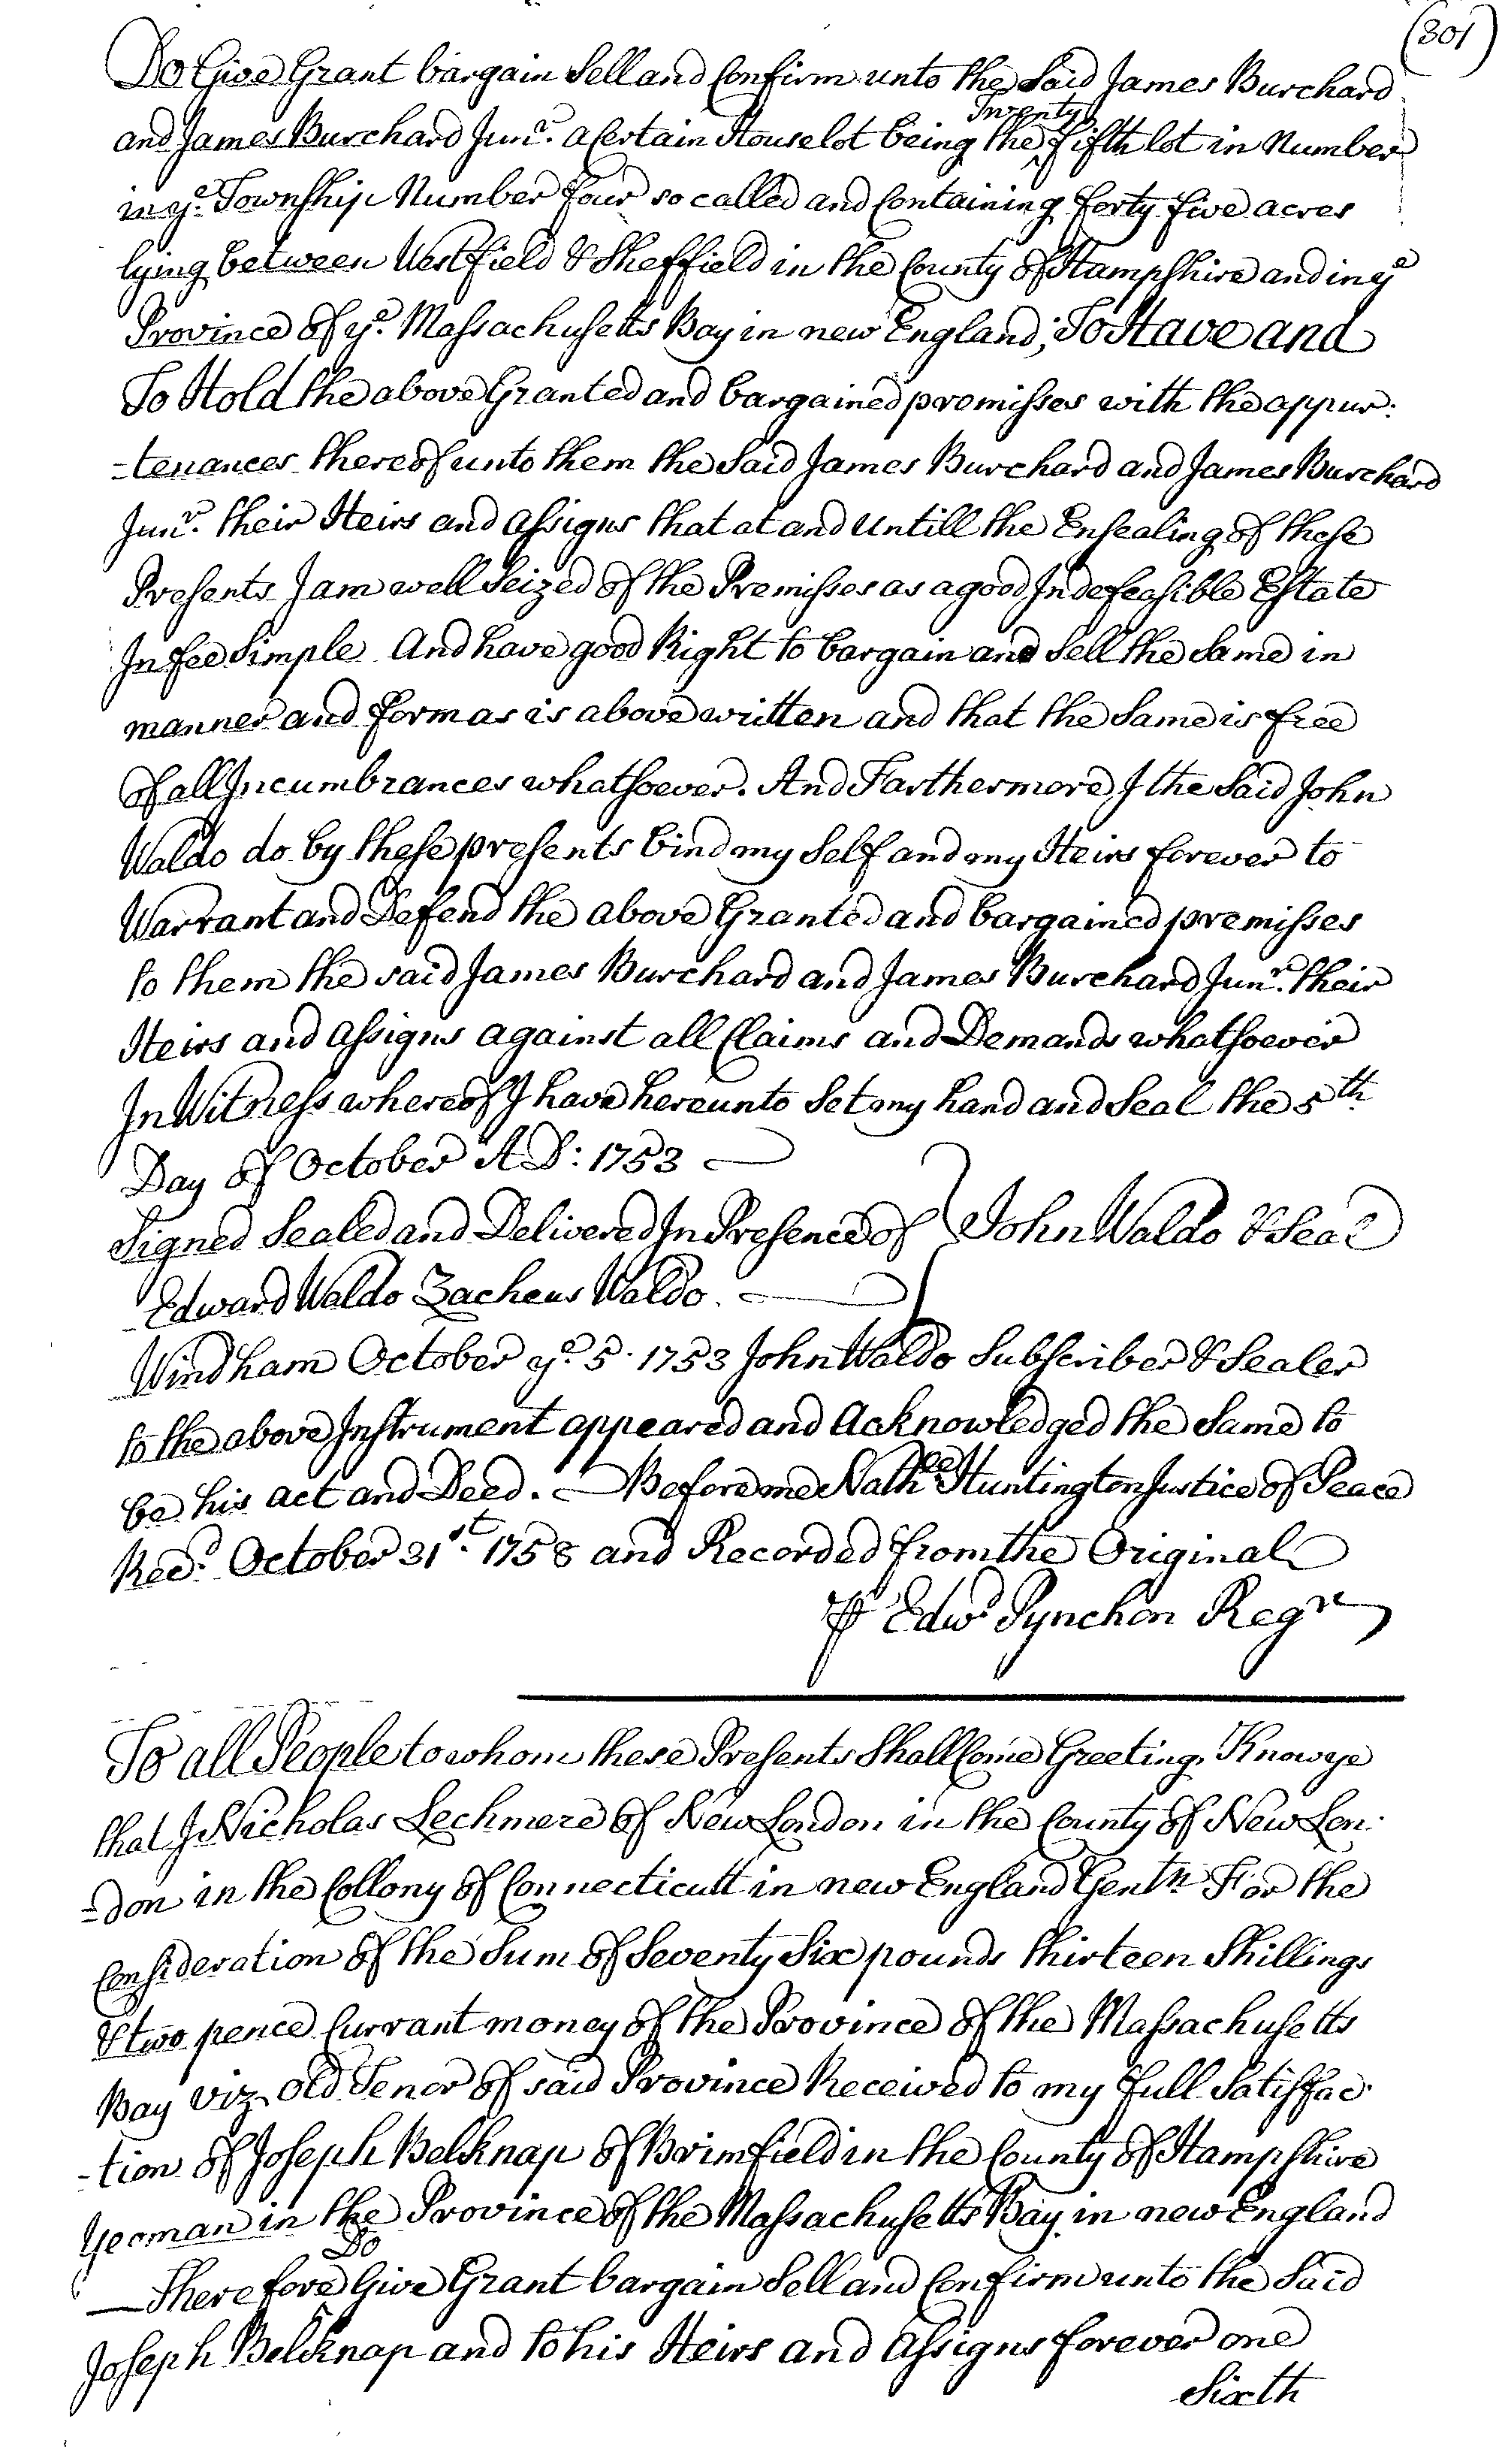 (301)
Do Give Grant bargain Sell and Confirm unto the Said James Burchard
Twenty
and James Burchard Junr. a Certain House lot being the ^ fifth lot in Number
in ye. Township Number four so called and Containing forty five acres
lying between Westfield & Sheffield in the County of Hampshire and in ye
Province of ye. Massachusetts Bay in new England; To Have and
To Hold the above Granted and bargained premisses with the appur:
-tenances thereof unto them the Said James Burchard and James Burchard
Junr. their Heirs and assigns that at and untill the Ensealing of these
Presents I am well Seized of the Premisses as a good Indefeasible Estate
In fee Simple And have good Right to bargain and Sell the Same in
manner and form as is above written and that the Same is free
of all Incumbrances whatsoever. And Farthermore I the Said John
Waldo do by these presents bind my Self and my Heirs forever to
Warrant and Defend the above Granted and bargained premisses
to them the said James Burchard and James Burchard Junr. their
Heirs and assigns against all Claims and Demands whatsoever
In Witness whereof I have hereunto Set my hand and Seal the 5th
Day of October A D: 1753
Signed Sealed and Delivered In Presence of } John Waldo & Seal
Edward Waldo Zacheus Waldo.
Windham October ye. 5. 1753 John Waldo Subscriber & Sealer
to the above Instrument appeared and Acknowledged the Same to
be his act and Deed. — Before me Nathee Huntington Justice of Peace
Recd. October 31st. 1758 and Recorded from the Original
P Edwd Pynchon Regr
To all People to whom these Presents Shall Come Greeting, Know ye
that I Nicholas Lechmere of New London in the County of New Lon:
=don in the Collony of Connecticutt in new England Gentn For the
Consideration of the Sum of Seventy Six pounds thirteen Shillings
& two pence Currant money of the Province of the Massachusetts
Bay viz. Old Tenor of said Province Received to my full Satisfac:
-tion of Joseph Belknap of Brimfield in the County of Hampshire
Yeoman in the Province of the Massachusetts Bay in new England
Do
—Therefore ^ Give Grant bargain Sell and Confirm unto the Said
Joseph Belknap and to his Heirs and Assigns forever one
Sixth